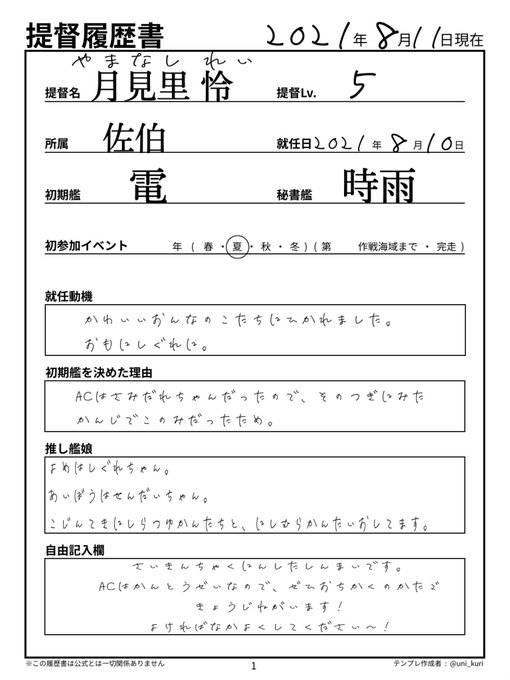 提督履歴書 2021年8月11日現在
やまなし れい
提督名 月見里 怜 提督Lv. 5
所属 佐伯 就任日 2021年8月10日
初期艦 電 秘書艦 時雨
初参加イベント 年 ( 春 ・ 夏 ・ 秋 ・ 冬 ) ( 第 作戦海域まで ・ 完走 )
就任動機
かわいいおんなのこたちにひかれました。
おもにしぐれに。
初期艦を決めた理由
ACはさみだれちゃんだったので、そのつぎにみた
かんじでこのみだったため。
推し艦娘
よめはしぐれちゃん。
あいぼうはせんだいちゃん。
こじんてきにしらつゆかんたちと、にしむらかんたいおしてます。
自由記入欄
さいきんちゃくにんしたしんまいです。
ACはかんとうぜいなので、ぜひおちかくのかたご
きょうじねがいます!
よければなかよくしてください〜!
※この履歴書は公式とは一切関係ありません 1 テンプレ作成者：@uni_kuri